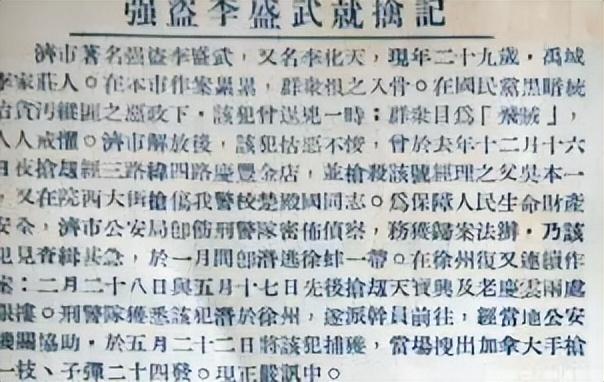 强盜李盛武就擒記
濟市著名强盜李盛武，又名李化天，現年二十九歲，禹城
李家莊人。在本市作案纍纍，群衆恨之入骨。在國民黨黑暗統
治貪污縱匪之惡政下，該犯曾逞兇一時；群衆目爲「飛賊」，
人人戒懼。濟市解放後，該犯怙惡不悛，曾於去年十二月十六
日夜搶刼經三路緯四路慶豐金店，並槍殺該號經理之父吳本一
，又在院西大街槍傷我警校楚殿國同志。爲保障人民生命財產
安全，濟市公安局卽飭刑警隊密佈偵察，務獲歸案法辦，乃該
犯見查緝甚急，於一月間卽潛逃徐蚌一帶。在徐州復又連續作
案：二月二十八日與五月十七日先後搶刼天寶興及老慶雲兩處
銀樓。刑警隊獲悉該犯潛於徐州，遂派幹員前往，經當地公安
機關協助，於五月二十二日將該犯捕獲，當場搜出加拿大手槍
一枝、子彈二十四發。現正嚴訊中。